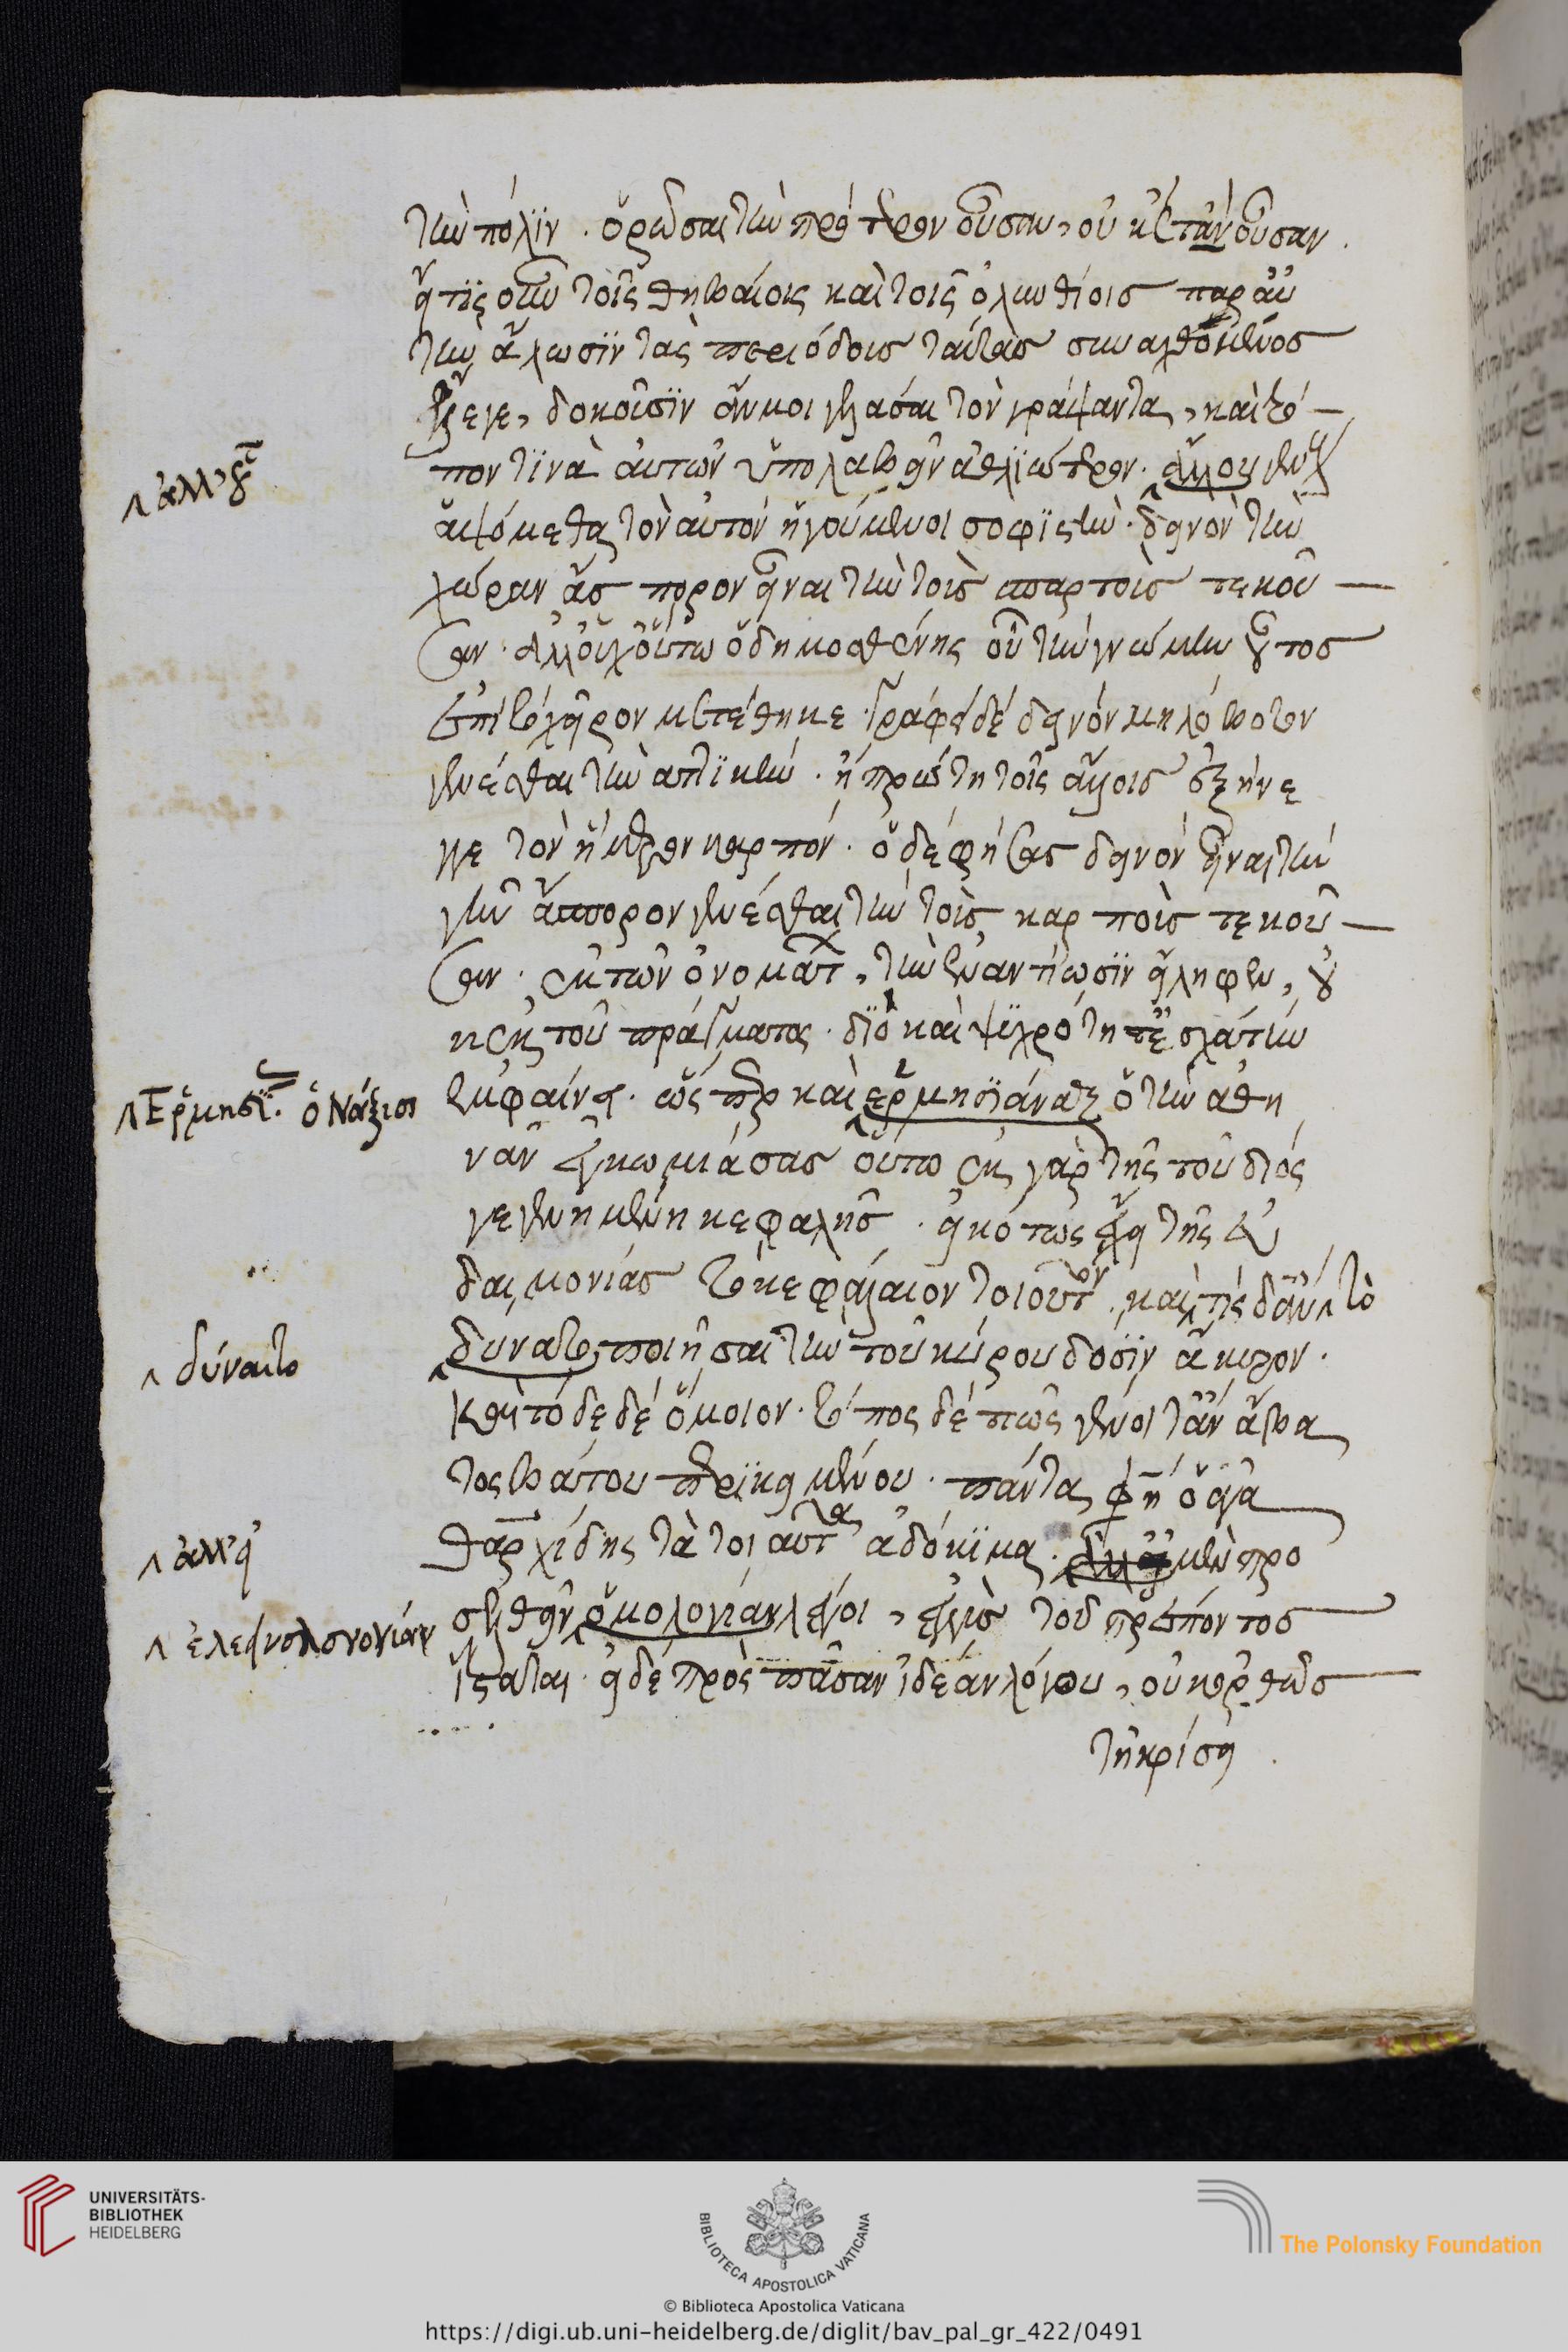 τὴν πόλιν. ὁρῶσαι τὴν πρότερον οὖσαν, οὐκέτ' ἂν οὖσαν.
εἴ τις οὖν τοῖς θηβαίοις καὶ τοῖς ὀλυνθίοις παρ' αὐ
τὴν ἅλωσιν τὰς περιόδους ταύτας συναλθόμενος
ἔλεγε, δοκοῦσιν ἄν μοι γελάσαι τὸν γράψαντα, καὶ τό
πον τινὰ αὐτῶν ὑπολαβεῖν ἀθλιώτερον. ἄλλου γένους
ἁψόμεθα τὸν αὐτὸν ἡγούμενοι σοφιστήν. δεινὸν τὴν
χώραν ἄσπορον εἶναι τὴν τοὺς σπαρτοὺς τεκοῦ
σαν. ἀλλ' οὐχ οὕτω ὁ δημοσθένης οὗ τὴν γνώμην οὗτος
ἐπὶ τὸ χεῖρον μετέθηκε. γράφει δὲ δεινὸν μηλόβοτον
γενέσθαι τὴν ἀττικήν. ἣ πρώτη τοῖς ἄλλοις ἐξήνε
γκε τὸν ἥμερον καρπόν. ὁ δὲ φήσας δεινὸν εἶναι τὴν
γῆν ἄσπορον γενέσθαι τὴν τοὺς καρποὺς τεκοῦ
σαν. ἐκ τῶν ὀνομάτ, τὴν ἐναντίωσιν εἴληφεν, οὐ
κ ἐκ τοῦ πράγματος. διὸ καὶ ψυχρότητ' ἐσχάτην
ἐμφαίνει. ὥσπερ καὶ ἑρμησιάναξ ὁ τὴν ἀθη
νᾶν ἐγκωμιάσας οὕτω ἐκ γὰρ τῆς τοῦ διός
γεγενημένη κεφαλῆς. εἰκότως ἔχει τῆς εὐ
δαιμονίας τὸ κεφάλαιον τοιοῦτον. καὶ τίς δ' ἂν τὸ
δύνατο ποιῆσαι τὴν τοῦ κύρου δόσιν ἄκυρον.
καὶ τόδε δὲ ὅμοιον. τόπος δὲ πῶς γένοιτ' ἂν ἄβα
τος βάτου περικειμένου. πάντα φησὶ ὁ ἀγα
θαρχίδης τὰ τοιαῦτα ἀδόκιμα. ἀλλ' εἰ μὲν προ
σελθεῖν ὁμολογίαν λέγοι, ἐγγὺς τοῦ πρέποντος
ἵσταται. εἰ δὲ πρὸς πᾶσαν ἰδέαν λόγου, οὐκ ὀρθῶς
τῇ κρίσει.
ἀλλ'
Ἑρμησι. ὁ Νάξιος
δύναιτο
ἀλλ' εἰ
ἐλεεινολογίαν
UNIVERSITÄTS-
BIBLIOTHEK
HEIDELBERG
BIBLIOTECA APOSTOLICA VATICANA
The Polonsky Foundation
© Biblioteca Apostolica Vaticana
https://digi.ub.uni-heidelberg.de/diglit/bav_pal_gr_422/0491